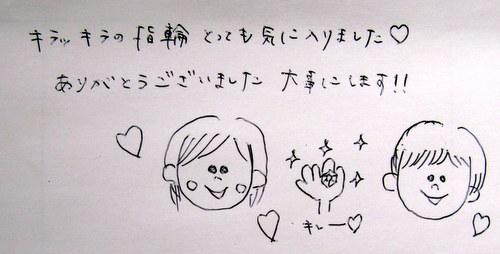 キラッキラの指輪 とっても気に入りました♡
ありがとうございました 大事にします!!
キレー♡